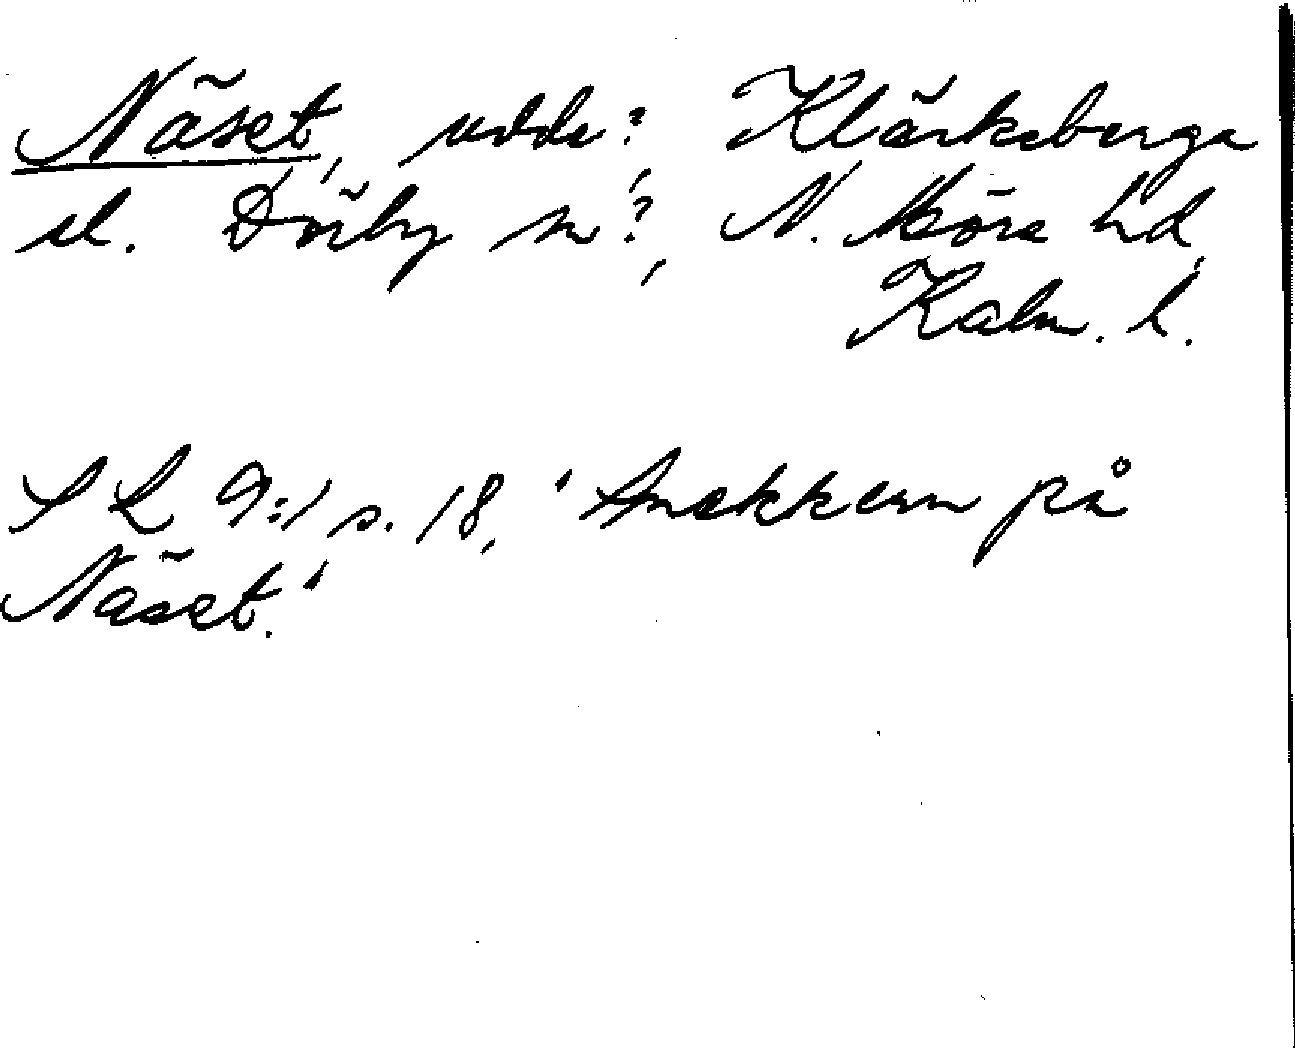 Näset, udde?, Kläckeberga
el. Dörby sn?, N. Möre hd,
Kalm. l.
SL 9:1 s. 18, "Snekkern på
Näset."